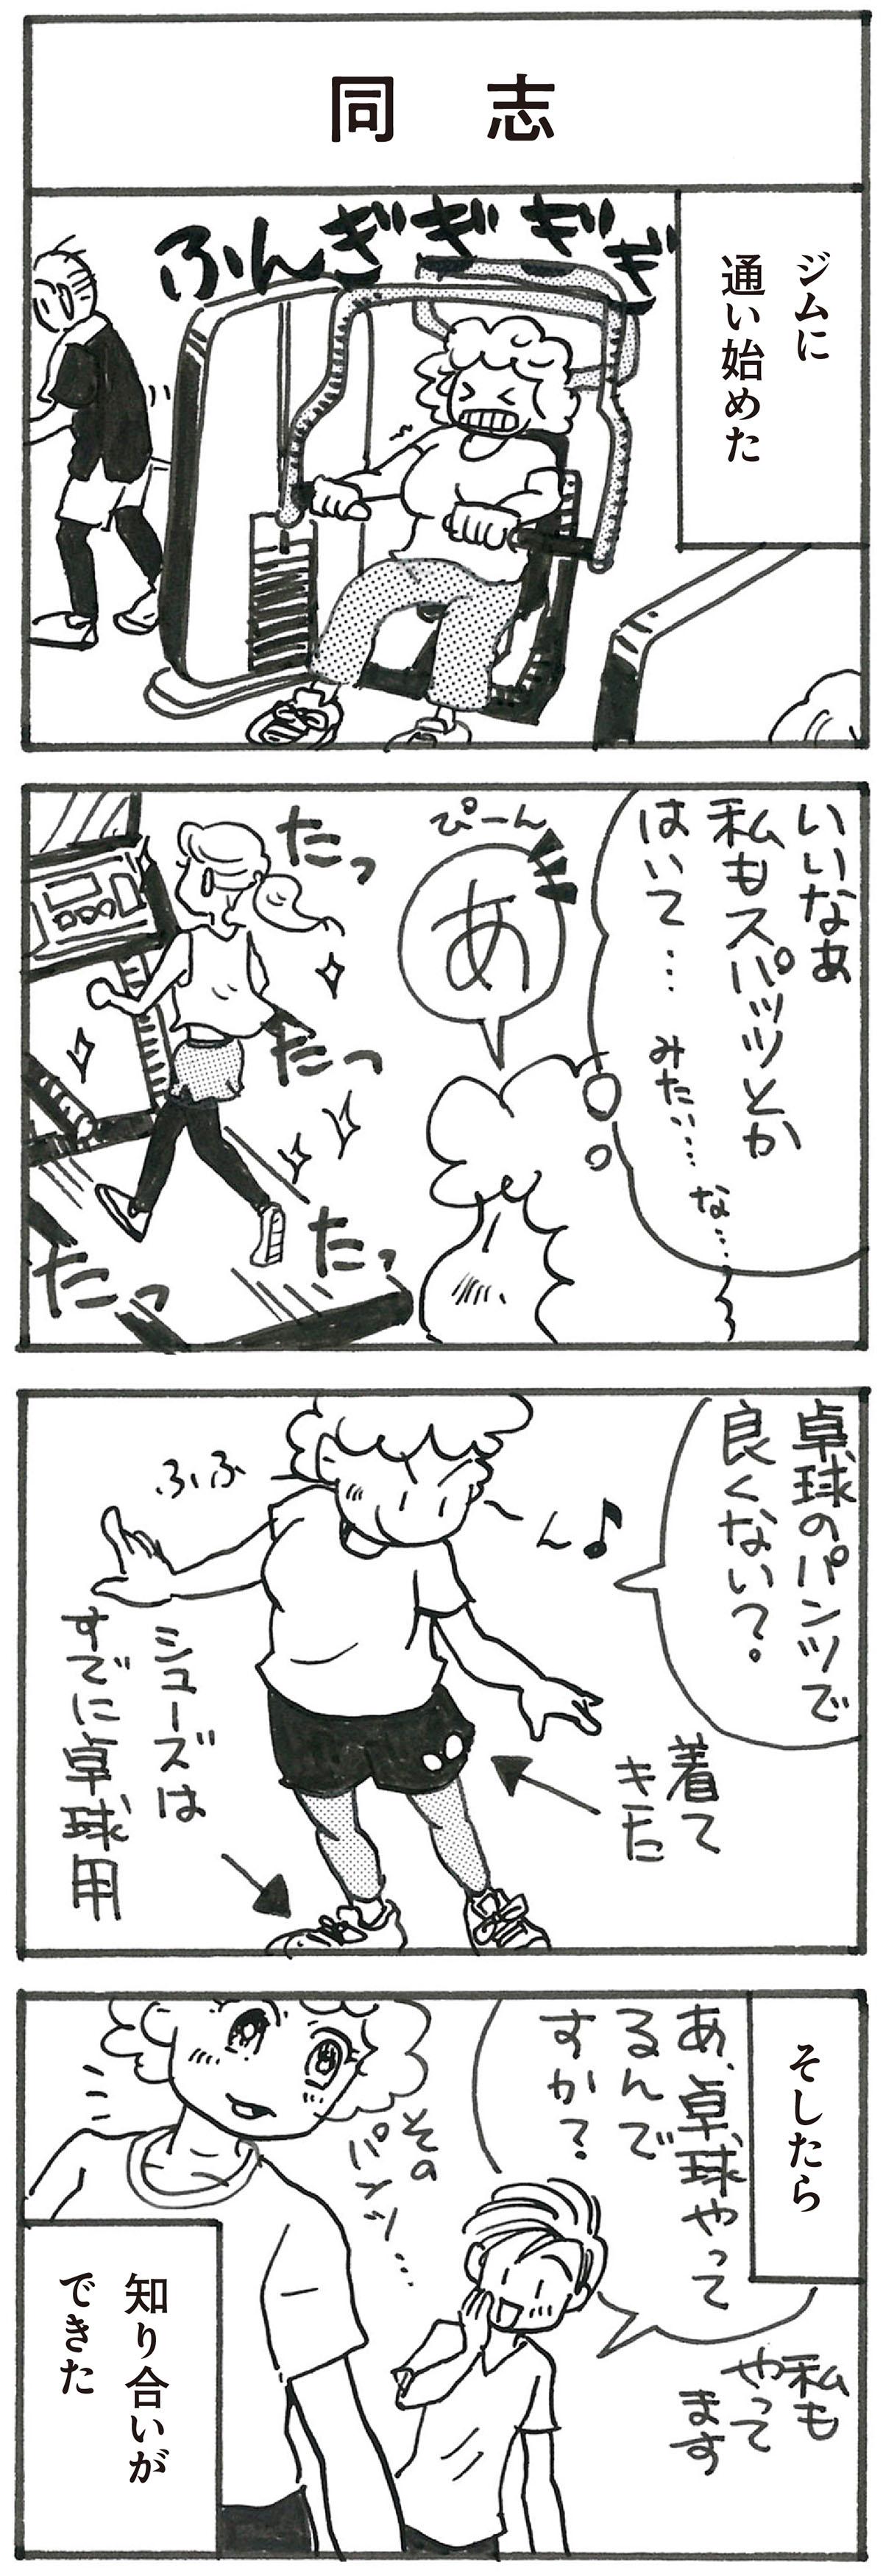 同志
ジムに
通い始めた
ふんぎぎぎぎ
いいなぁ
私もスパッツとか
はいて…
みたい…
な…
ぴーん
あ
たっ
たっ
たっ
たっ
卓球のパンツで
良くない?
ふふ
ふーん♪
着て
きた
シューズは
すでに卓球用
そしたら
あ、卓球やって
るんで
すか?
その
パンツ…
私も
やって
ます
知り合いが
できた